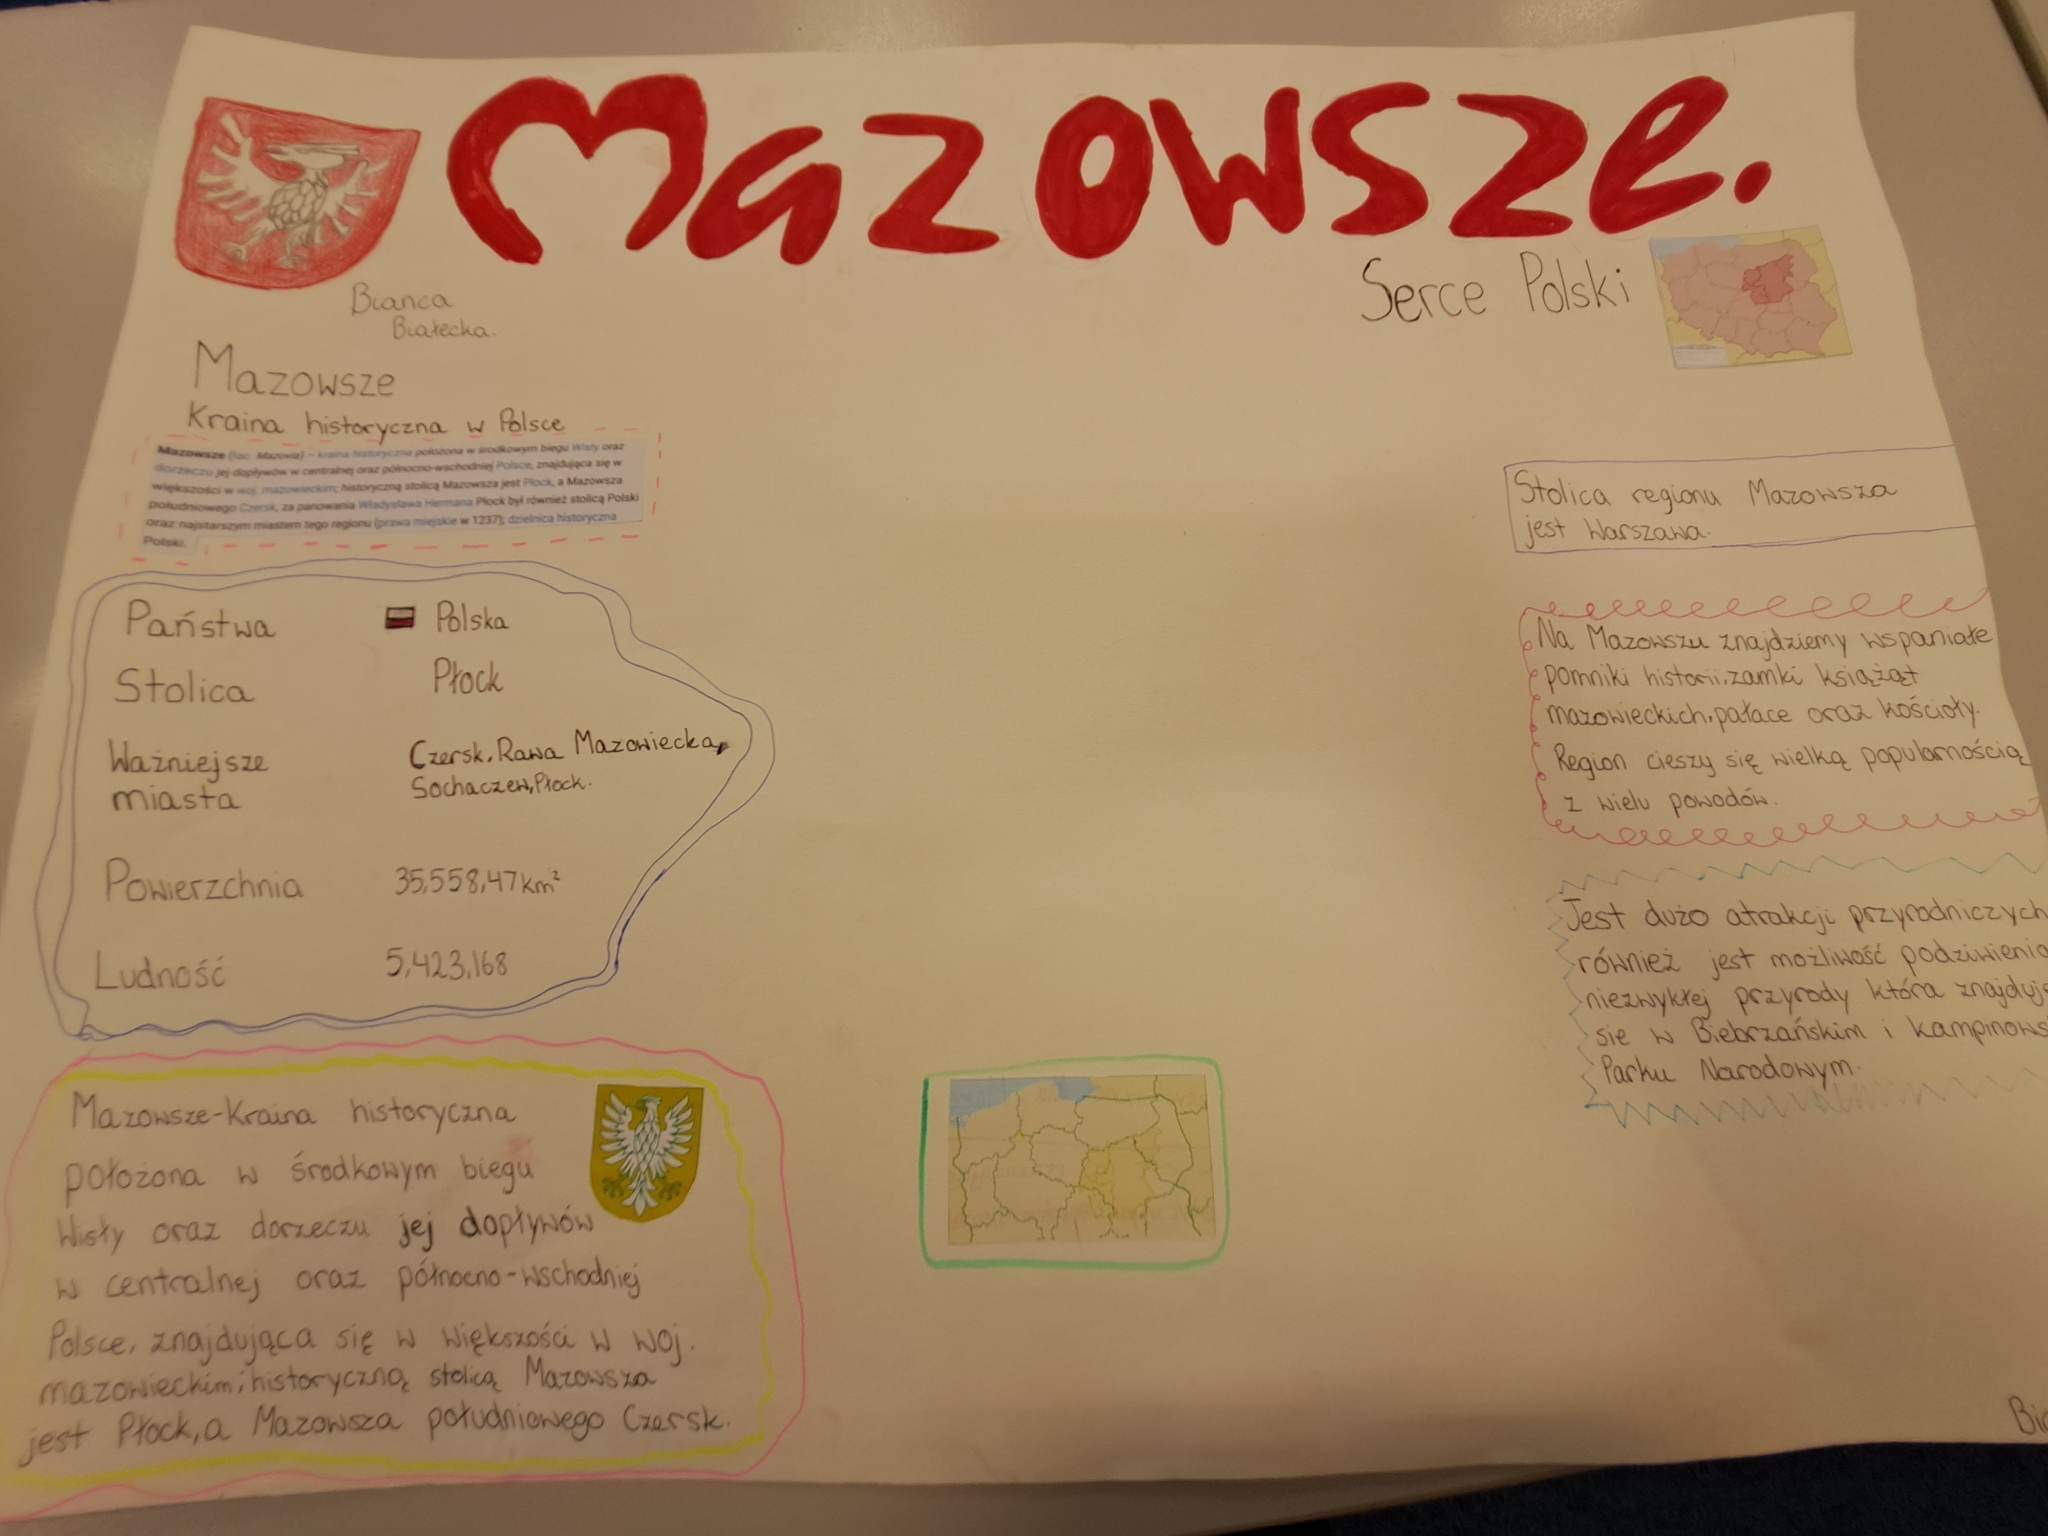 Mazowsze.
Serce Polski
Bianca
Białecka.
Mazowsze
Kraina historyczna w Polsce
Mazowsze (łac. Mazovia) – kraina historyczna położona w środkowym biegu Wisły oraz
dorzeczu jej dopływów w centralnej oraz północno-wschodniej Polsce, znajdująca się w
większości w woj. mazowieckim; historyczną stolicą Mazowsza jest Płock, a Mazowsza
południowego Czersk, za panowania Władysława Hermana Płock był również stolicą Polski
oraz najstarszym miastem tego regionu (prawa miejskie w 1237); dzielnica historyczna
Polski.
Państwa Polska
Stolica Płock
Ważniejsze miasta Czersk, Rawa Mazowiecka,
Sochaczew, Płock.
Powierzchnia 35,558,47 km²
Ludność 5,423,168
Mazowsze-Kraina historyczna
położona w środkowym biegu
Wisły oraz dorzeczu jej dopływów
w centralnej oraz północno-wschodniej
Polsce, znajdująca się w większości w woj.
mazowieckim; historyczną stolicą Mazowsza
jest Płock, a Mazowsza południowego Czersk.
Stolica regionu Mazowsza
jest Warszawa.
Na Mazowszu znajdziemy wspaniałe
pomniki historii, zamki książąt
mazowieckich, pałace oraz kościoły.
Region cieszy się wielką popularnością
z wielu powodów.
Jest dużo atrakcji przyrodniczych
również jest możliwość podziwienia
niezwykłej przyrody która znajduje
sie w Biebrzańskim i Kampinows
Parku Narodowym.